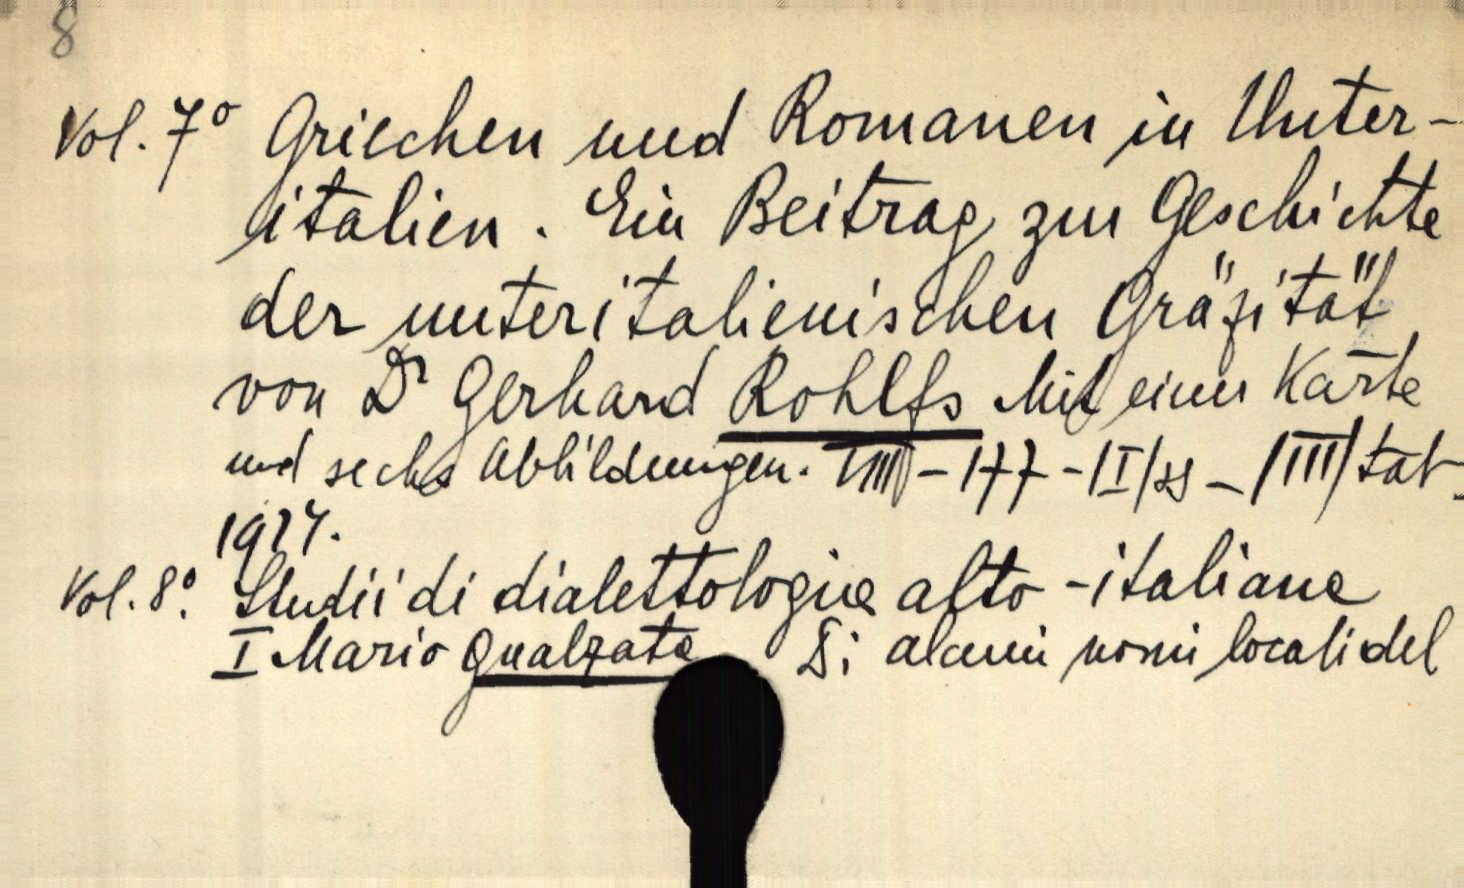 8
Vol. 7º Griechen und Romanen in Unter-
italien. Ein Beitrag zur Geschichte
der unteritalienischen Gräzität
von Dr Gerhard Rohlfs Mit einer Karte
und sechs Abbildungen. VIII - 177 - /I/ss - /III/ tab-
Vol. 8º. Studii di dialettologia alto-italiana
I Mario Gualzata Di alcuni nomi locali del